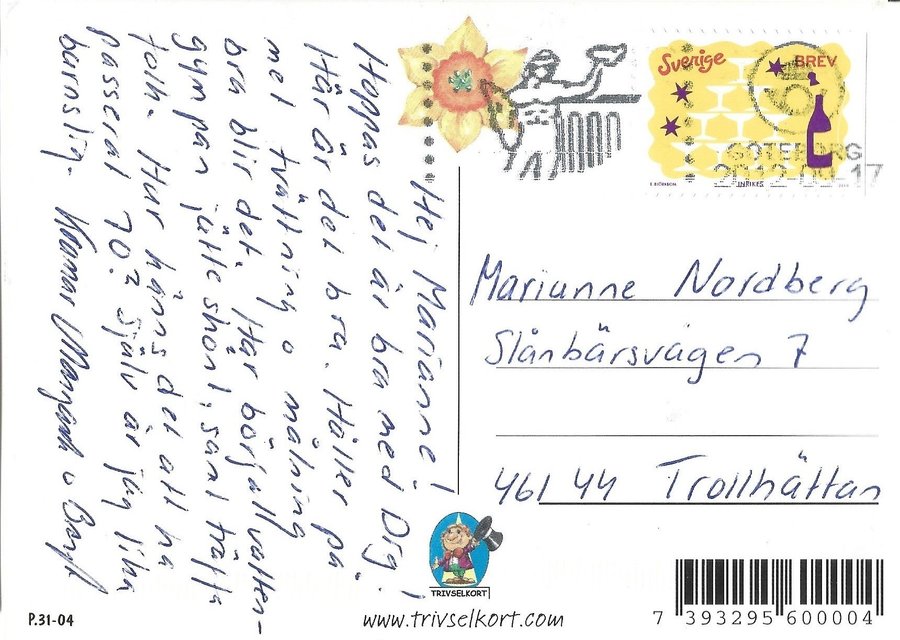 Hej Marianne!
Hoppas det är bra med Dig!
Här är det bra. Håller på
med tvättning o målning
bra blir det. Har börjat vatten-
gympan jätte skönt, samt träffa
folk. Hur känns det att ha
passerat 70? Själv är jag lika
barnslig. Kramar o Bengt
Sverige
BREV
GÖTEBORG
2012-04-17
INRIKES
Marianne Nordberg
Slånbärsvägen 7
461 44 Trollhättan
TRIVSELKORT
P.31-04
www.trivselkort.com
7 393295 600004